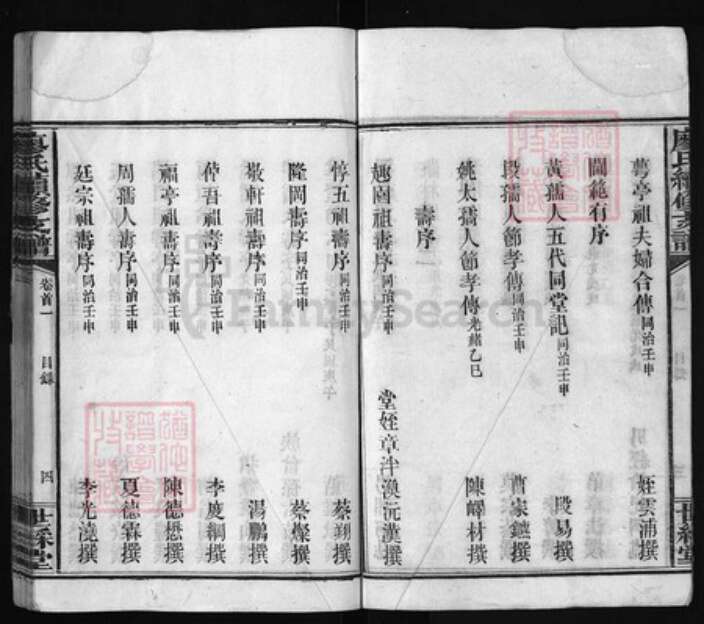 廖氏續修支譜
萼亭祖夫婦合傳同治壬申 姪雲浦撰
閫範有序
黃孺人五代同堂記同治壬申 段易撰
段孺人節孝傳同治壬申 曹家鑣撰
姚太孺人節孝傳光緒乙巳 陳嶧材撰
壽序一
趣園祖壽序同治壬申 堂姪章泮漢沅漢撰
惇五祖壽序同治壬申 蔡翔撰
隆岡壽序同治壬申 蔡燦撰
敬軒祖壽序同治壬申 湯鵬撰
仲吾祖壽序同治壬申 李度綱撰
福亭祖壽序同治壬申 陳德懋撰
周孺人壽序同治壬申 夏德霖撰
廷宗祖壽序同治壬申 李光澆撰
廖氏續修支譜
卷首一
目錄
四
世綵堂
世綵堂
FamilySearch